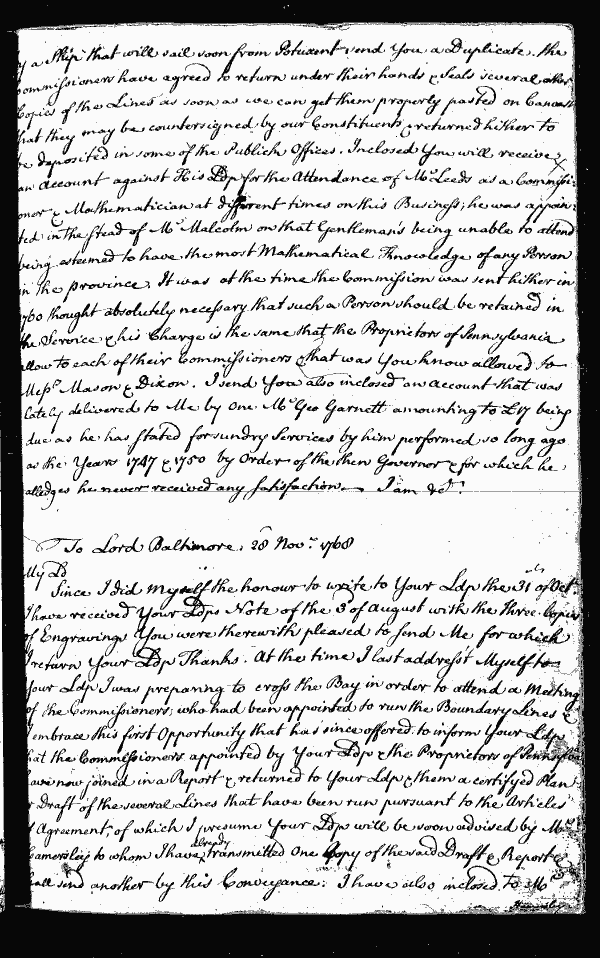 by a Ship that will sail soon from Potuxent send You a Duplicate. The
Commissioners have agreed to return under their hands & Seals several other
Copies of the Lines as soon as we can get them properly pasted on Canvass
that they may be countersigned by our Constituents & returned hither to
be deposited in some of the Publick Offices. Inclosed You will receive
an Account against His Ldp for the Attendance of Mr. Leeds as a Commissi-
oner & Mathematician at different times on this Business; he was appoin-
ted in the stead of Mr. Malcolm on that Gentleman's being unable to attend
being esteemed to have the most Mathematical Knowledge of any Person
in the province. It was at the time the Commission was sent hither in
1760 thought absolutely necessary that such a Person should be retained in
the Service & his Charge is the same that the Proprietors of Pennsylvania
allow to each of their Commissioners & that was You know allowed to
Messrs. Mason & Dixon. I send You also inclosed an Account that was
lately delivered to Me by One Mr. Geo Garnett amounting to £17 being
due as he has stated for sundry Services by him performed so long ago
as the Years 1747 & 1750 by Order of the then Governor & for which he
alledges he never received any Satisfaction. I am &c.
To Lord Baltimore. 28 Novr. 1768
My Ld
Since I did myself the honour to write to Your Ldp the 31 of Octr.
I have received Your Ldps Note of the 3 of August with the Three Copies
of Engravings You were therewith pleased to send Me for which
I return Your Ldp Thanks. At the time I last address't Myself to
Your Ldp I was preparing to cross the Bay in order to attend a Meeting
of the Commissioners, who had been appointed to run the Boundary Lines &
I embrace this first Opportunity that has since offered to inform Your Ldp
that the Commissioners appointed by Your Ldp & the Proprietors of Pennsylva
have now joined in a Report & returned to Your Ldp & them a certifyed Plan
or Draft of the several Lines that have been run pursuant to the Articles
of Agreement, of which I presume Your Ldp will be soon advised by Mr.
Hamersley to whom I have already transmitted One Copy of the said Draft & Report &
shall send another by this Conveyance. I have also inclosed to Mr.
Hamersley